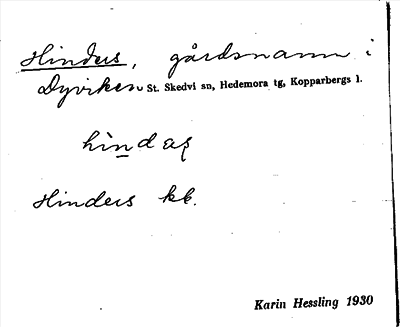 Hinders, gårdsnamn i
Dyviken St. Skedvi sn, Hedemora tg, Kopparbergs l.
hindaş
Hinders kb.
Karin Hessling 1930